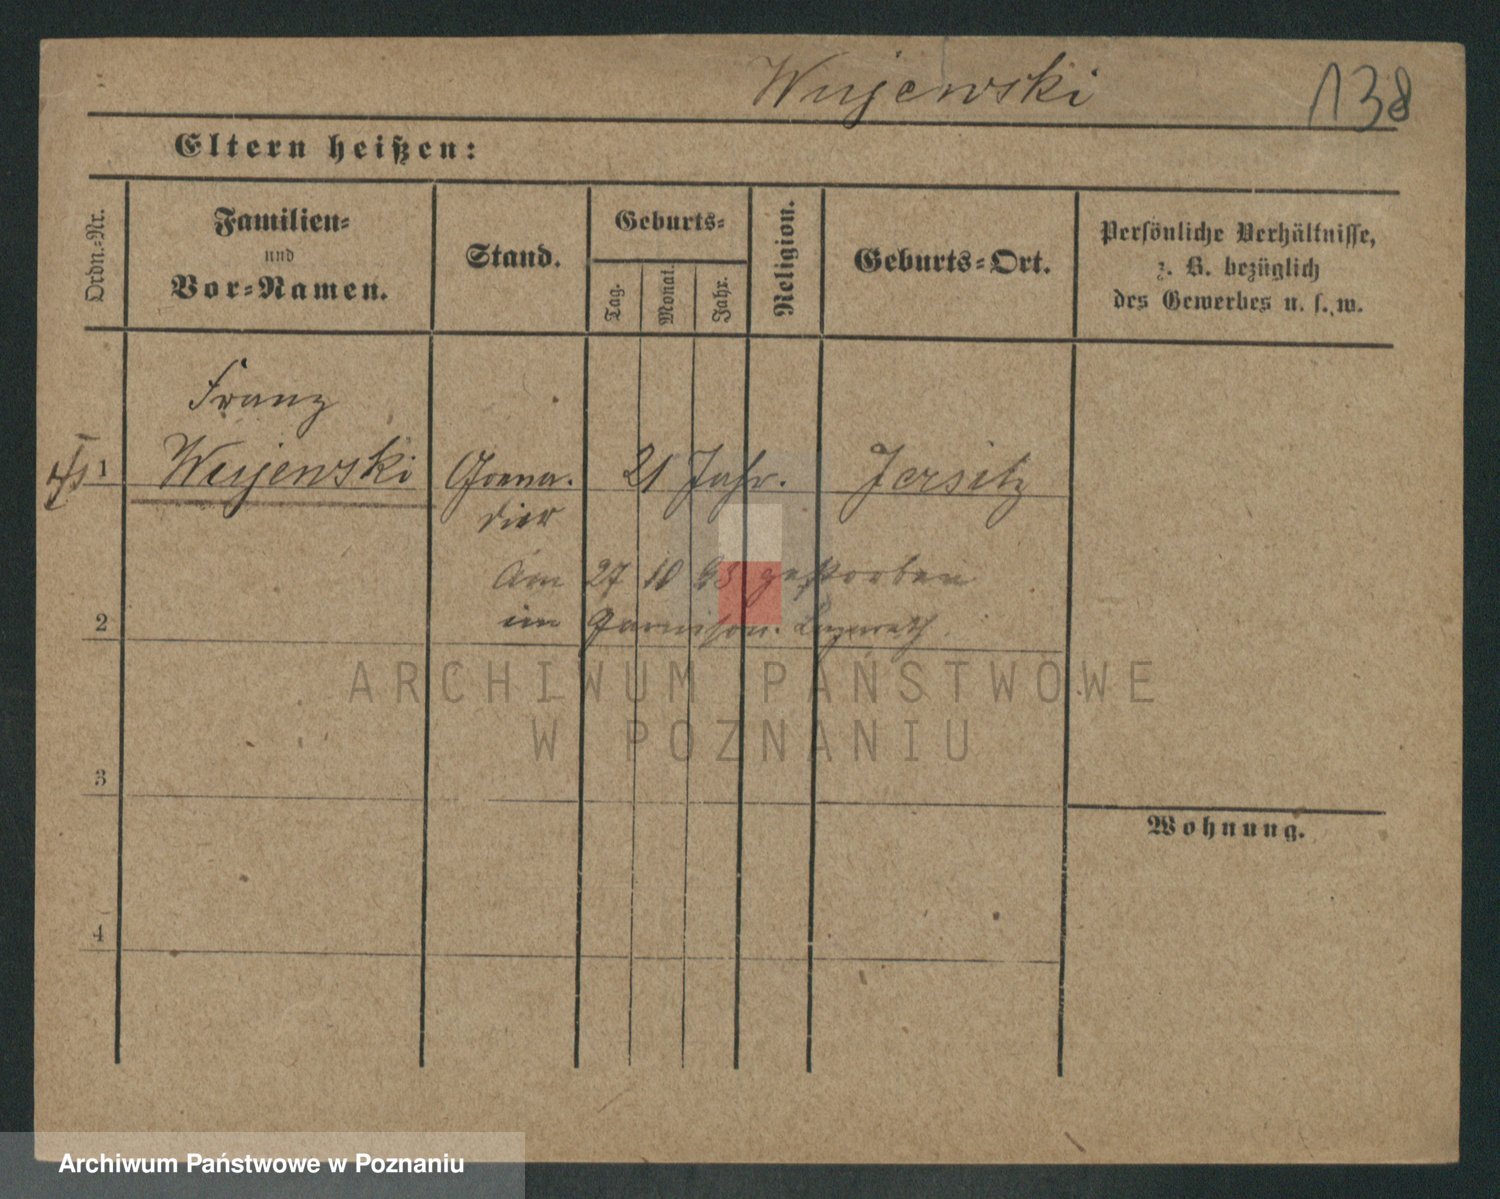 Wujewski
138
Eltern heißen:
Ordn.-Nr.
Familien-
und
Vor-Namen.
Stand.
Geburts-
Tag.
Monat.
Jahr.
Religion.
Geburts-Ort.
Persönliche Verhältnisse,
z. B. bezüglich
des Gewerbes u. s. w.
Franz
1 Wujewski Grena- 21 Jahr. Jersitz
dier
Am 27 10 93 gestorben
2 im Garnison. Lazareth.
ARCHIWUM PAŃSTWOWE
W POZNANIU
3
Wohnung.
4
Archiwum Państwowe w Poznaniu